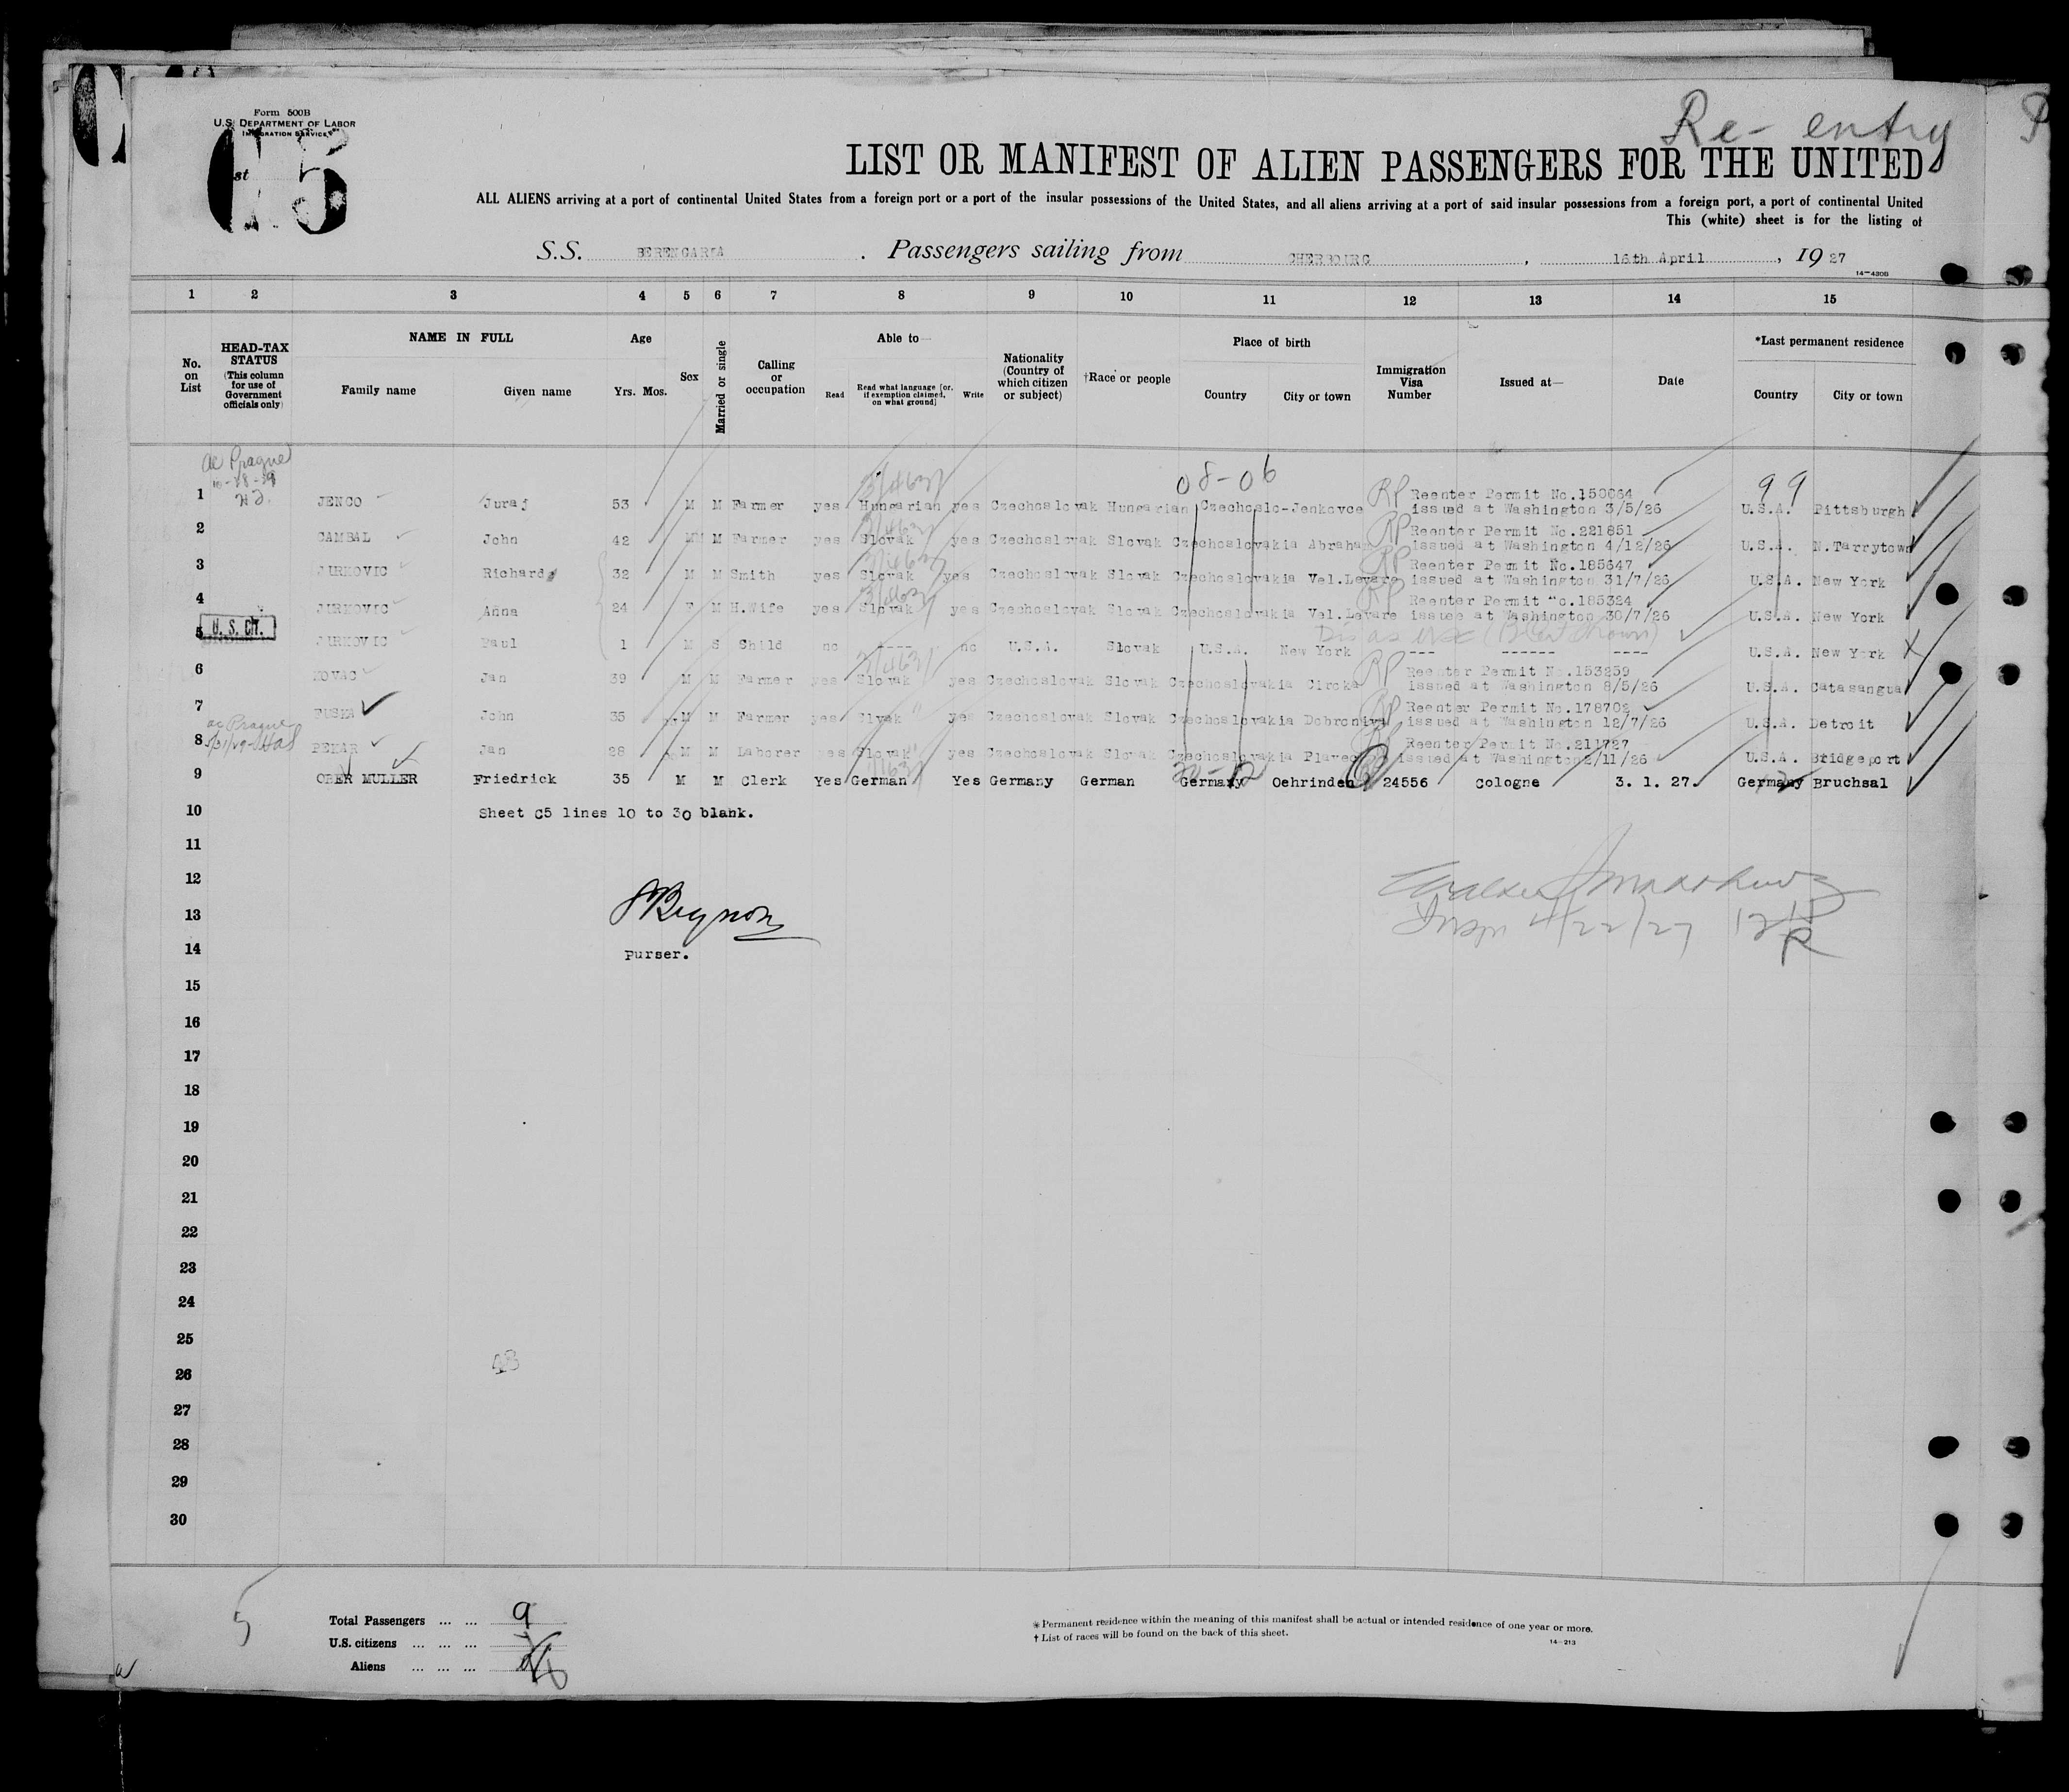 Re-entry
Form 500B
U.S. DEPARTMENT OF LABOR
IMMIGRATION SERVICE
C5
LIST OR MANIFEST OF ALIEN PASSENGERS FOR THE UNITED
ALL ALIENS arriving at a port of continental United States from a foreign port or a port of the insular possessions of the United States, and all aliens arriving at a port of said insular possessions from a foreign port, a port of continental United
This (white) sheet is for the listing of
S.S. BERENGARIA. Passengers sailing from CHERBOURG, 16th April, 1927
14-430B
1 2 3 4 5 6 7 8 9 10 11 12 13 14 15
No. on List HEAD-TAX STATUS (This column for use of Government officials only) NAME IN FULL Family name Given name Age Yrs. Mos. Sex Married or single Calling or occupation Able to— Read Read what language [or, if exemption claimed, on what ground] Write Nationality (Country of which citizen or subject) †Race or people Place of birth Country City or town Immigration Visa Number Issued at— Date *Last permanent residence Country City or town
ac Prague
08-06 99
1 JENCO Juraj 53 M M Farmer yes Hungarian yes Czechoslovak Hungarian Czechoslo-Jenkovce RP Reenter Permit No.150064 issued at Washington 3/5/26 U.S.A. Pittsburgh
2 CAMBAL John 42 M M Farmer yes Slovak yes Czechoslovak Slovak Czechoslovakia Abraham RP Reenter Permit No.221851 issued at Washington 4/12/26 U.S.A. N.Tarrytown
3 JURKOVIC Richard 32 M M Smith yes Slovak yes Czechoslovak Slovak Czechoslovakia Vel.Levare RP Reenter Permit No.185647 issued at Washington 31/7/26 U.S.A. New York
4 JURKOVIC Anna 24 F M H.Wife yes Slovak yes Czechoslovak Slovak Czechoslovakia Vel.Levare RP Reenter Permit No.185324 issued at Washington 30/7/26 U.S.A. New York
U. S. Cit.
5 JURKOVIC Paul 1 M S Child no ---- no U.S.A. Slovak U.S.A. New York --- ------ ---- U.S.A. New York
6 KOVAC Jan 39 M M Farmer yes Slovak yes Czechoslovak Slovak Czechoslovakia Circka RP Reenter Permit No.153259 issued at Washington 8/5/26 U.S.A. Catasangua
7 John 35 M M Farmer yes Slvak yes Czechoslovak Slovak Czechoslovakia Dobroniva RP Reenter Permit No.178702 issued at Washington 12/7/26 U.S.A. Detroit
ac Prague
8 Jan 28 M M Laborer yes Slovak yes Czechoslovak Slovak Czechoslovakia Plavec Reenter Permit No.211727 issued at Washington 2/11/26 U.S.A. Bridgeport
9 OBER MULLER Friedrick 35 M M Clerk Yes German Yes Germany German Germany Oehrinden 24556 Cologne 3. 1. 27. Germany Bruchsal
10 Sheet C5 lines 10 to 30 blank.
11
12
13
14 Purser.
Insp 4/22/27
15
16
17
18
19
20
21
22
23
24
25
26
27
28
29
30
5
Total Passengers ... ... 9
U.S. citizens ... ... ...
Aliens ... ... ...
* Permanent residence within the meaning of this manifest shall be actual or intended residence of one year or more.
† List of races will be found on the back of this sheet.
14-213